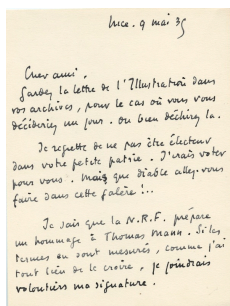 Nice. 9 mai 35
Cher ami,
Gardez la lettre de l'Illustration dans
vos archives, pour le cas où vous vous
décideriez un jour. Ou bien déchirez la.
Je regrette de ne pas être électeur
dans votre petite patrie. J'irais voter
pour vous. Mais que diable allez-vous
faire dans cette galère !..
Je sais que la N.R.F. prépare
un hommage à Thomas Mann. Si les
termes en sont mesurés, comme j'ai
tout lieu de le croire, je joindrais
volontiers ma signature.